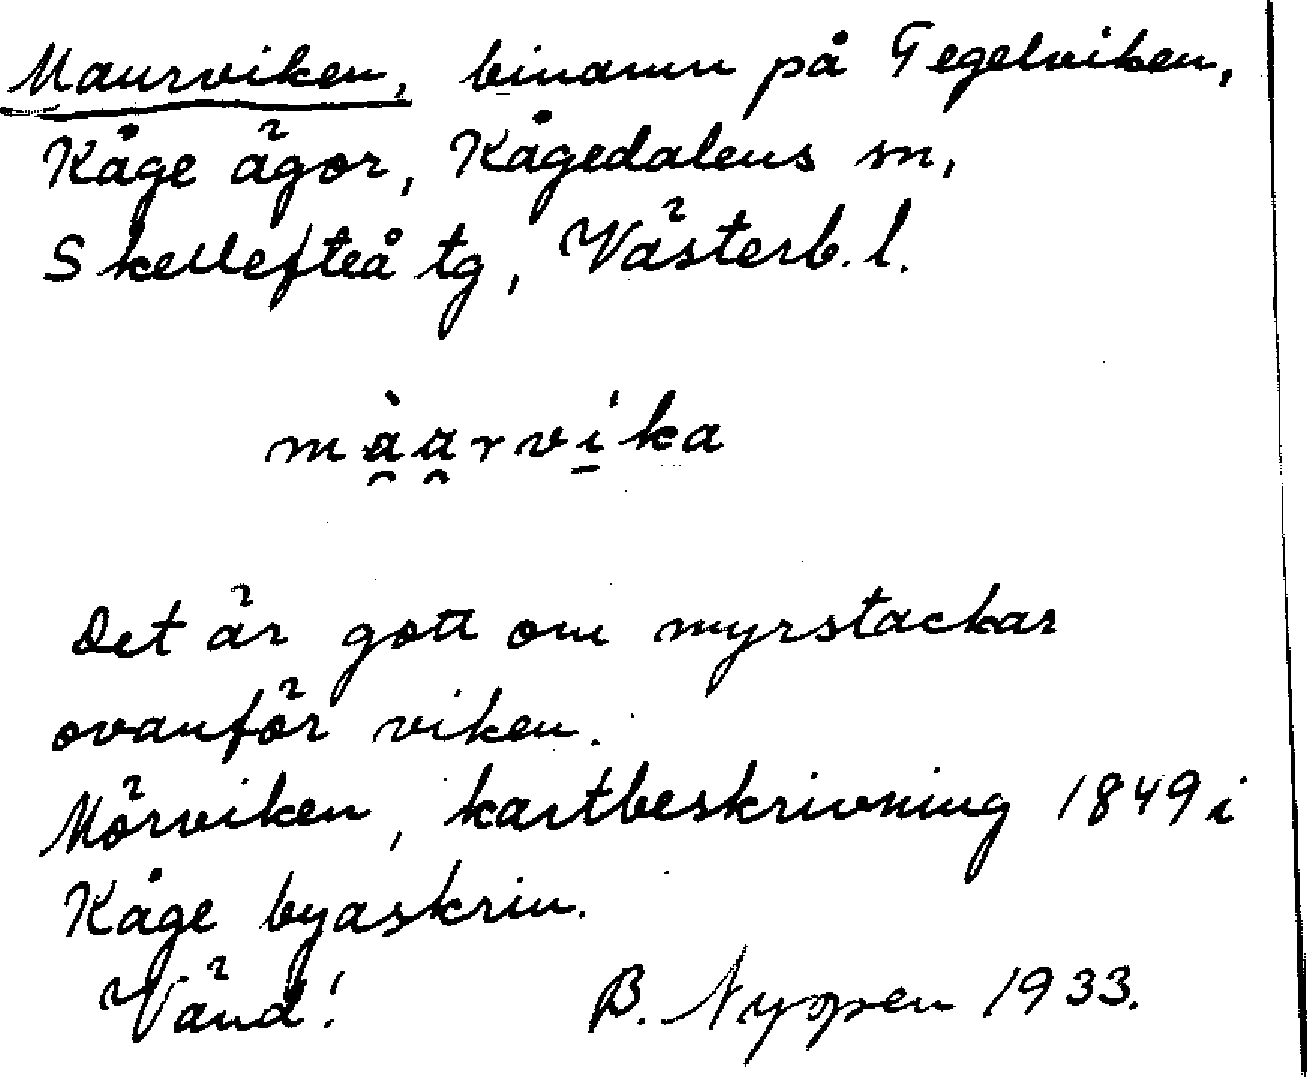 Maurviken, binamn på Tegelviken,
Kåge ägor, Kågedalens sn,
Skellefteå tg, Västerb. l.
mà̯a̯rví̱ka
Det är gott om myrstackar
ovanför viken.
Mörviken, kartbeskrivning 1849 i
Kåge byaskrin.
Vänd! B. Nyppen 1933.